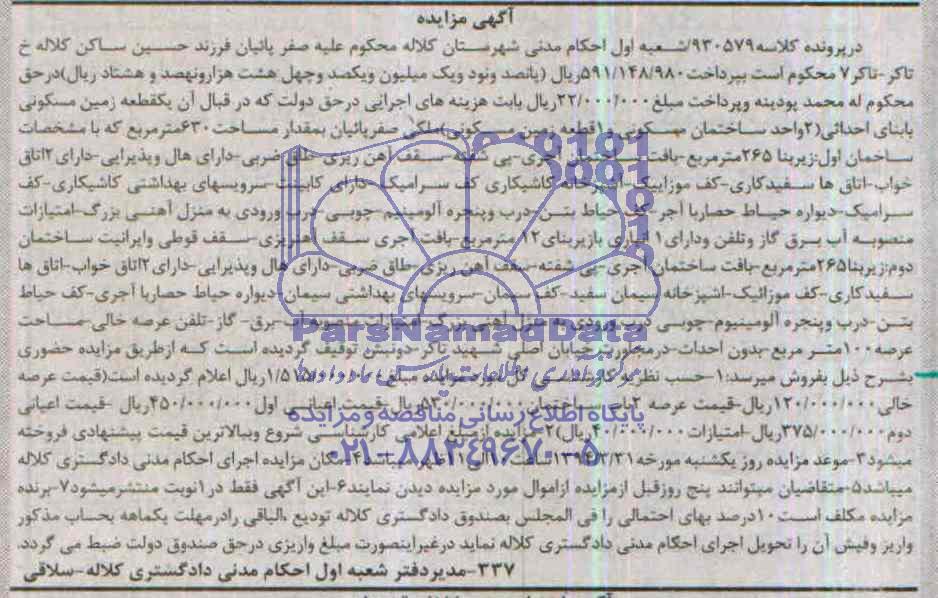 آگهی مزایده
درپرونده کلاسه۹۳۰۵۷۹/شعبه اول احکام مدنی شهرستان کلاله محکوم علیه صفر پائیان فرزند حسین ساکن کلاله خ
تاکر-تاکر۷ محکوم است بپرداخت۵۹۱/۱۴۸/۹۸۰ریال (پانصد ونود ویک میلیون ویکصد وچهل هشت هزارونهصد و هشتاد ریال)درحق
محکوم له محمد پودینه وپرداخت مبلغ۲۲/۰۰۰/۰۰۰ریال بابت هزینه های اجرائی درحق دولت که در قبال آن یکقطعه زمین مسکونی
بابنای احداثی(۲واحد ساختمان مسکونی و۱قطعه زمین مسکونی)ملکی صفرپائیان بمقدار مساحت۶۳۰مترمربع که با مشخصات
ساحمان اول:زیربنا ۲۶۵مترمربع-بافت ساختمان آجری-پی شفته-سقف آهن ریزی-طاق ضربی-دارای هال وپذیرایی-دارای۲اتاق
خواب-اتاق ها سفیدکاری-کف موزاییک-آشپزخانه کاشیکاری کف سرامیک-دارای کابینت-سرویسهای بهداشتی کاشیکاری-کف
سرامیک-دیواره حیاط حصاربا آجر-کف حیاط بتن-درب وپنجره آلومینیم-چوبی-درب ورودی به منزل آهنی بزرگ-امتیازات
منصوبه آب برق گاز وتلفن ودارای۱ انباری بازیربنای۱۲ مترمربع-بافت آجری سقف آهنریزی-سقف قوطی وایرانیت ساختمان
دوم:زیربنا۲۶۵مترمربع-بافت ساختمان آجری-پی شفته-سقف آهن ریزی-طاق ضربی-دارای هال وپذیرایی-دارای۲اتاق خواب-اتاق ها
سفیدکاری-کف موزائیک-اشپزخانه سیمان سفید-کف سیمان-سرویسهای بهداشتی سیمان-دیواره حیاط حصاربا آجری-کف حیاط
بتن-درب وپنجره آلومینیوم-چوبی درب ورودی به منزل آهنی بزرگ-امتیازات منصوبه آب-برق- گاز-تلفن عرصه خالی-مساحت
ParsNamadData
عرصه۱۰۰متر مربع-بدون احداث-درمجاورت خیابان اصلی شهید تاکر-دونبش توقیف گردیده است که ازطریق مزایده حضوری
بشرح ذیل بفروش میرسد:۱-حسب نظریه کارشناسی کل مورد مزایده مبلغ ریال اعلام گردیده است(قیمت عرصه
خالی۱۲۰/۰۰۰/۰۰۰ریال-قیمت عرصه ۲باب ساختمان۵۳۰/۰۰۰/۰۰۰ریال-قیمت اعیانی اول۴۵۰/۰۰۰/۰۰۰ریال -قیمت اعیانی
پایگاه اطلاع رسانی مناقصه ومزایده
دوم۳۷۵/۰۰۰/۰۰۰ریال-امتیازات۴۰/۰۰۰/۰۰۰ریال)۲-مزایده ازمبلغ اعلامی کارشناسی شروع وببالاترین قیمت پیشنهادی فروخته
۰۲۱-۸۸۳۴۹۶۷۰-۵
میشود۳-موعد مزایده روز یکشنبه مورخه ۱۳۹۴/۳/۳۱ساعت ظهر میباشد۴-مکان مزایده اجرای احکام مدنی دادگستری کلاله
میباشد۵-متقاضیان میتوانند پنج روزقبل ازمزایده ازاموال مورد مزایده دیدن نمایند۶-این آگهی فقط در۱نوبت منتشرمیشود۷-برنده
مزایده مکلف است۱۰درصد بهای احتمالی را فی المجلس بصندوق دادگستری کلاله تودیع ،الباقی رادرمهلت یکماهه بحساب مذکور
واریز وفیش آن را تحویل اجرای احکام مدنی دادگستری کلاله نماید درغیراینصورت مبلغ واریزی درحق صندوق دولت ضبط می گردد.
۳۳۷-مدیردفتر شعبه اول احکام مدنی دادگستری کلاله-سلاقی